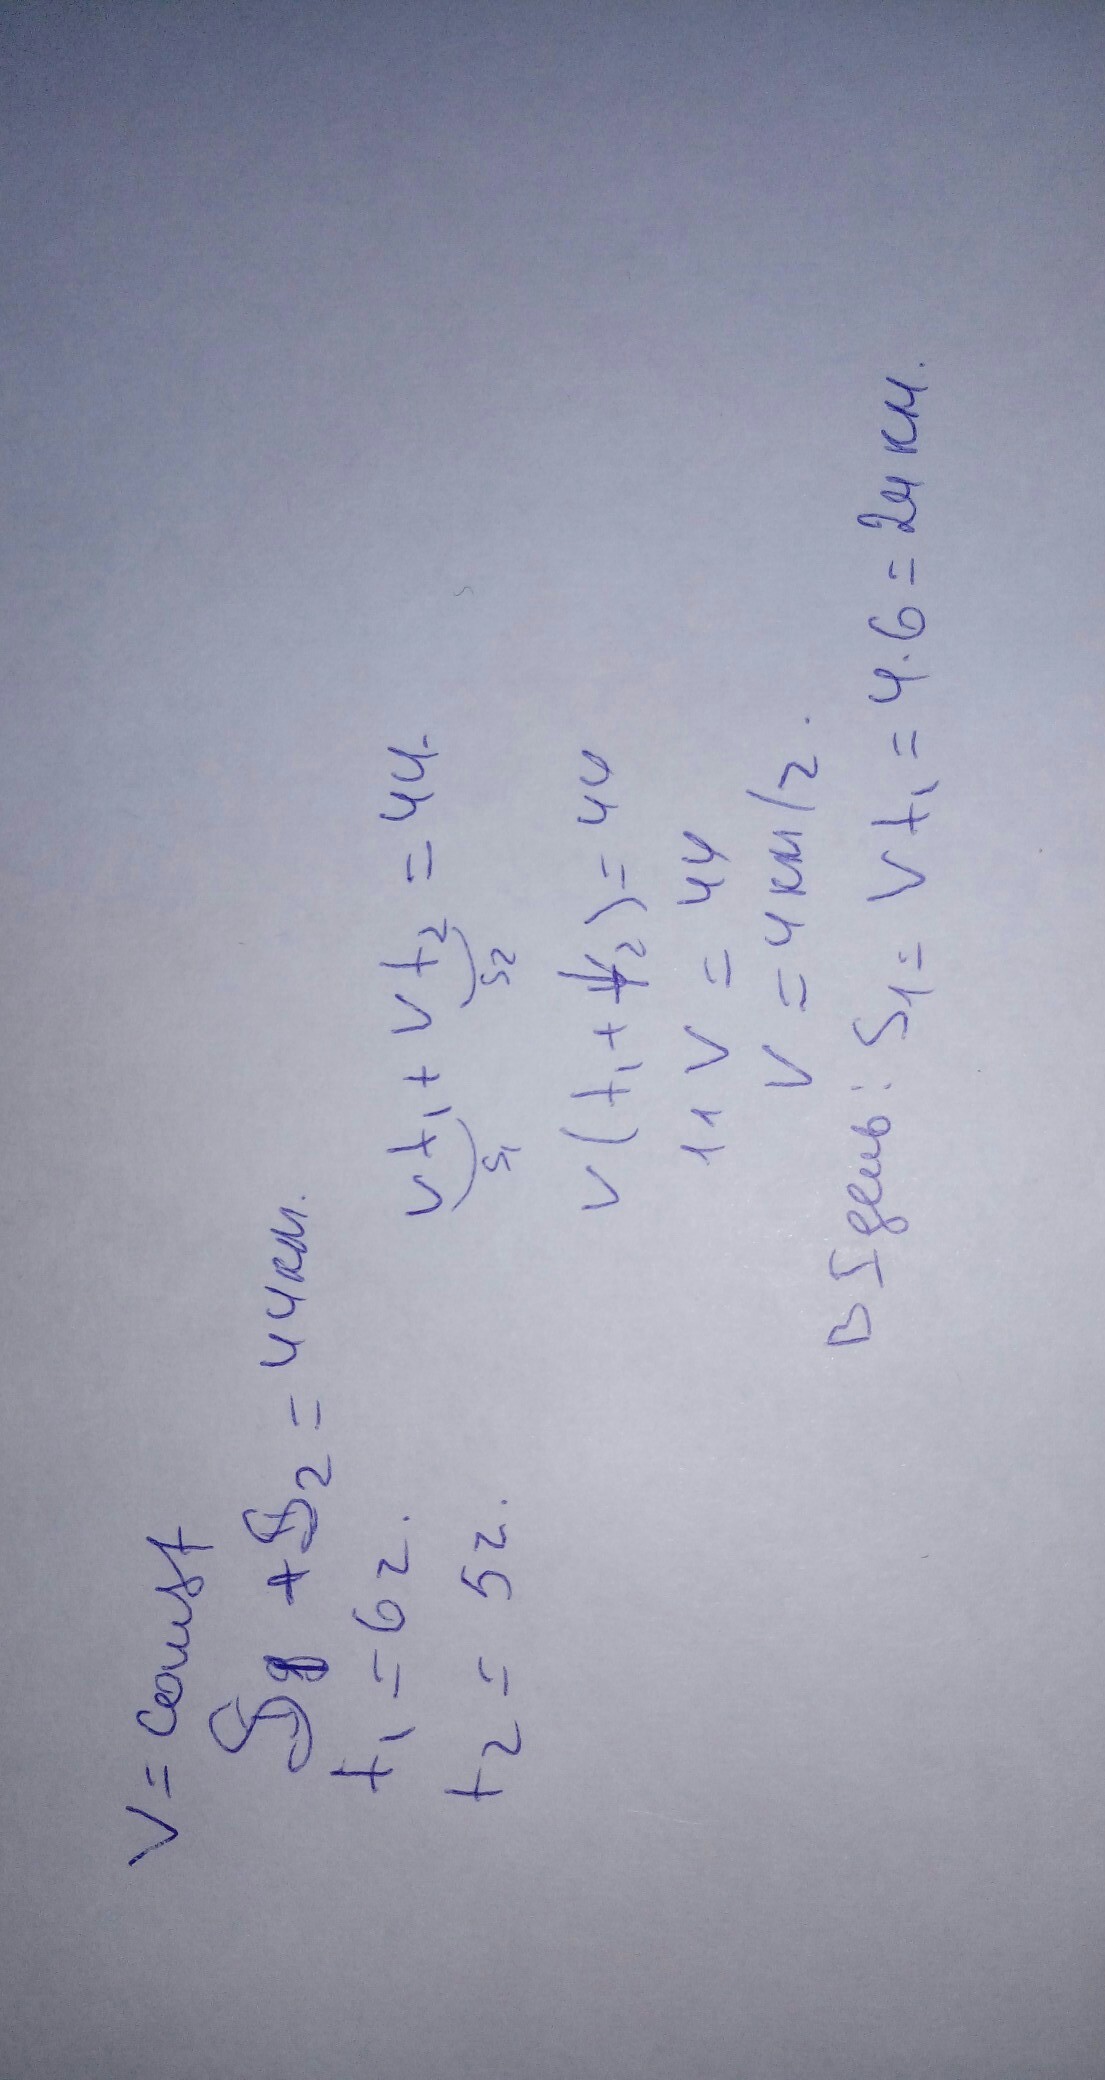 V = const
S1 + S2 = 44км.
t1 = 6г.
t2 = 5г.
vt1 + vt2 = 44.
S1 S2
v(t1 + t2) = 44
11 v = 44
v = 4км/г.
В I день: S1 = vt1 = 4·6 = 24км.